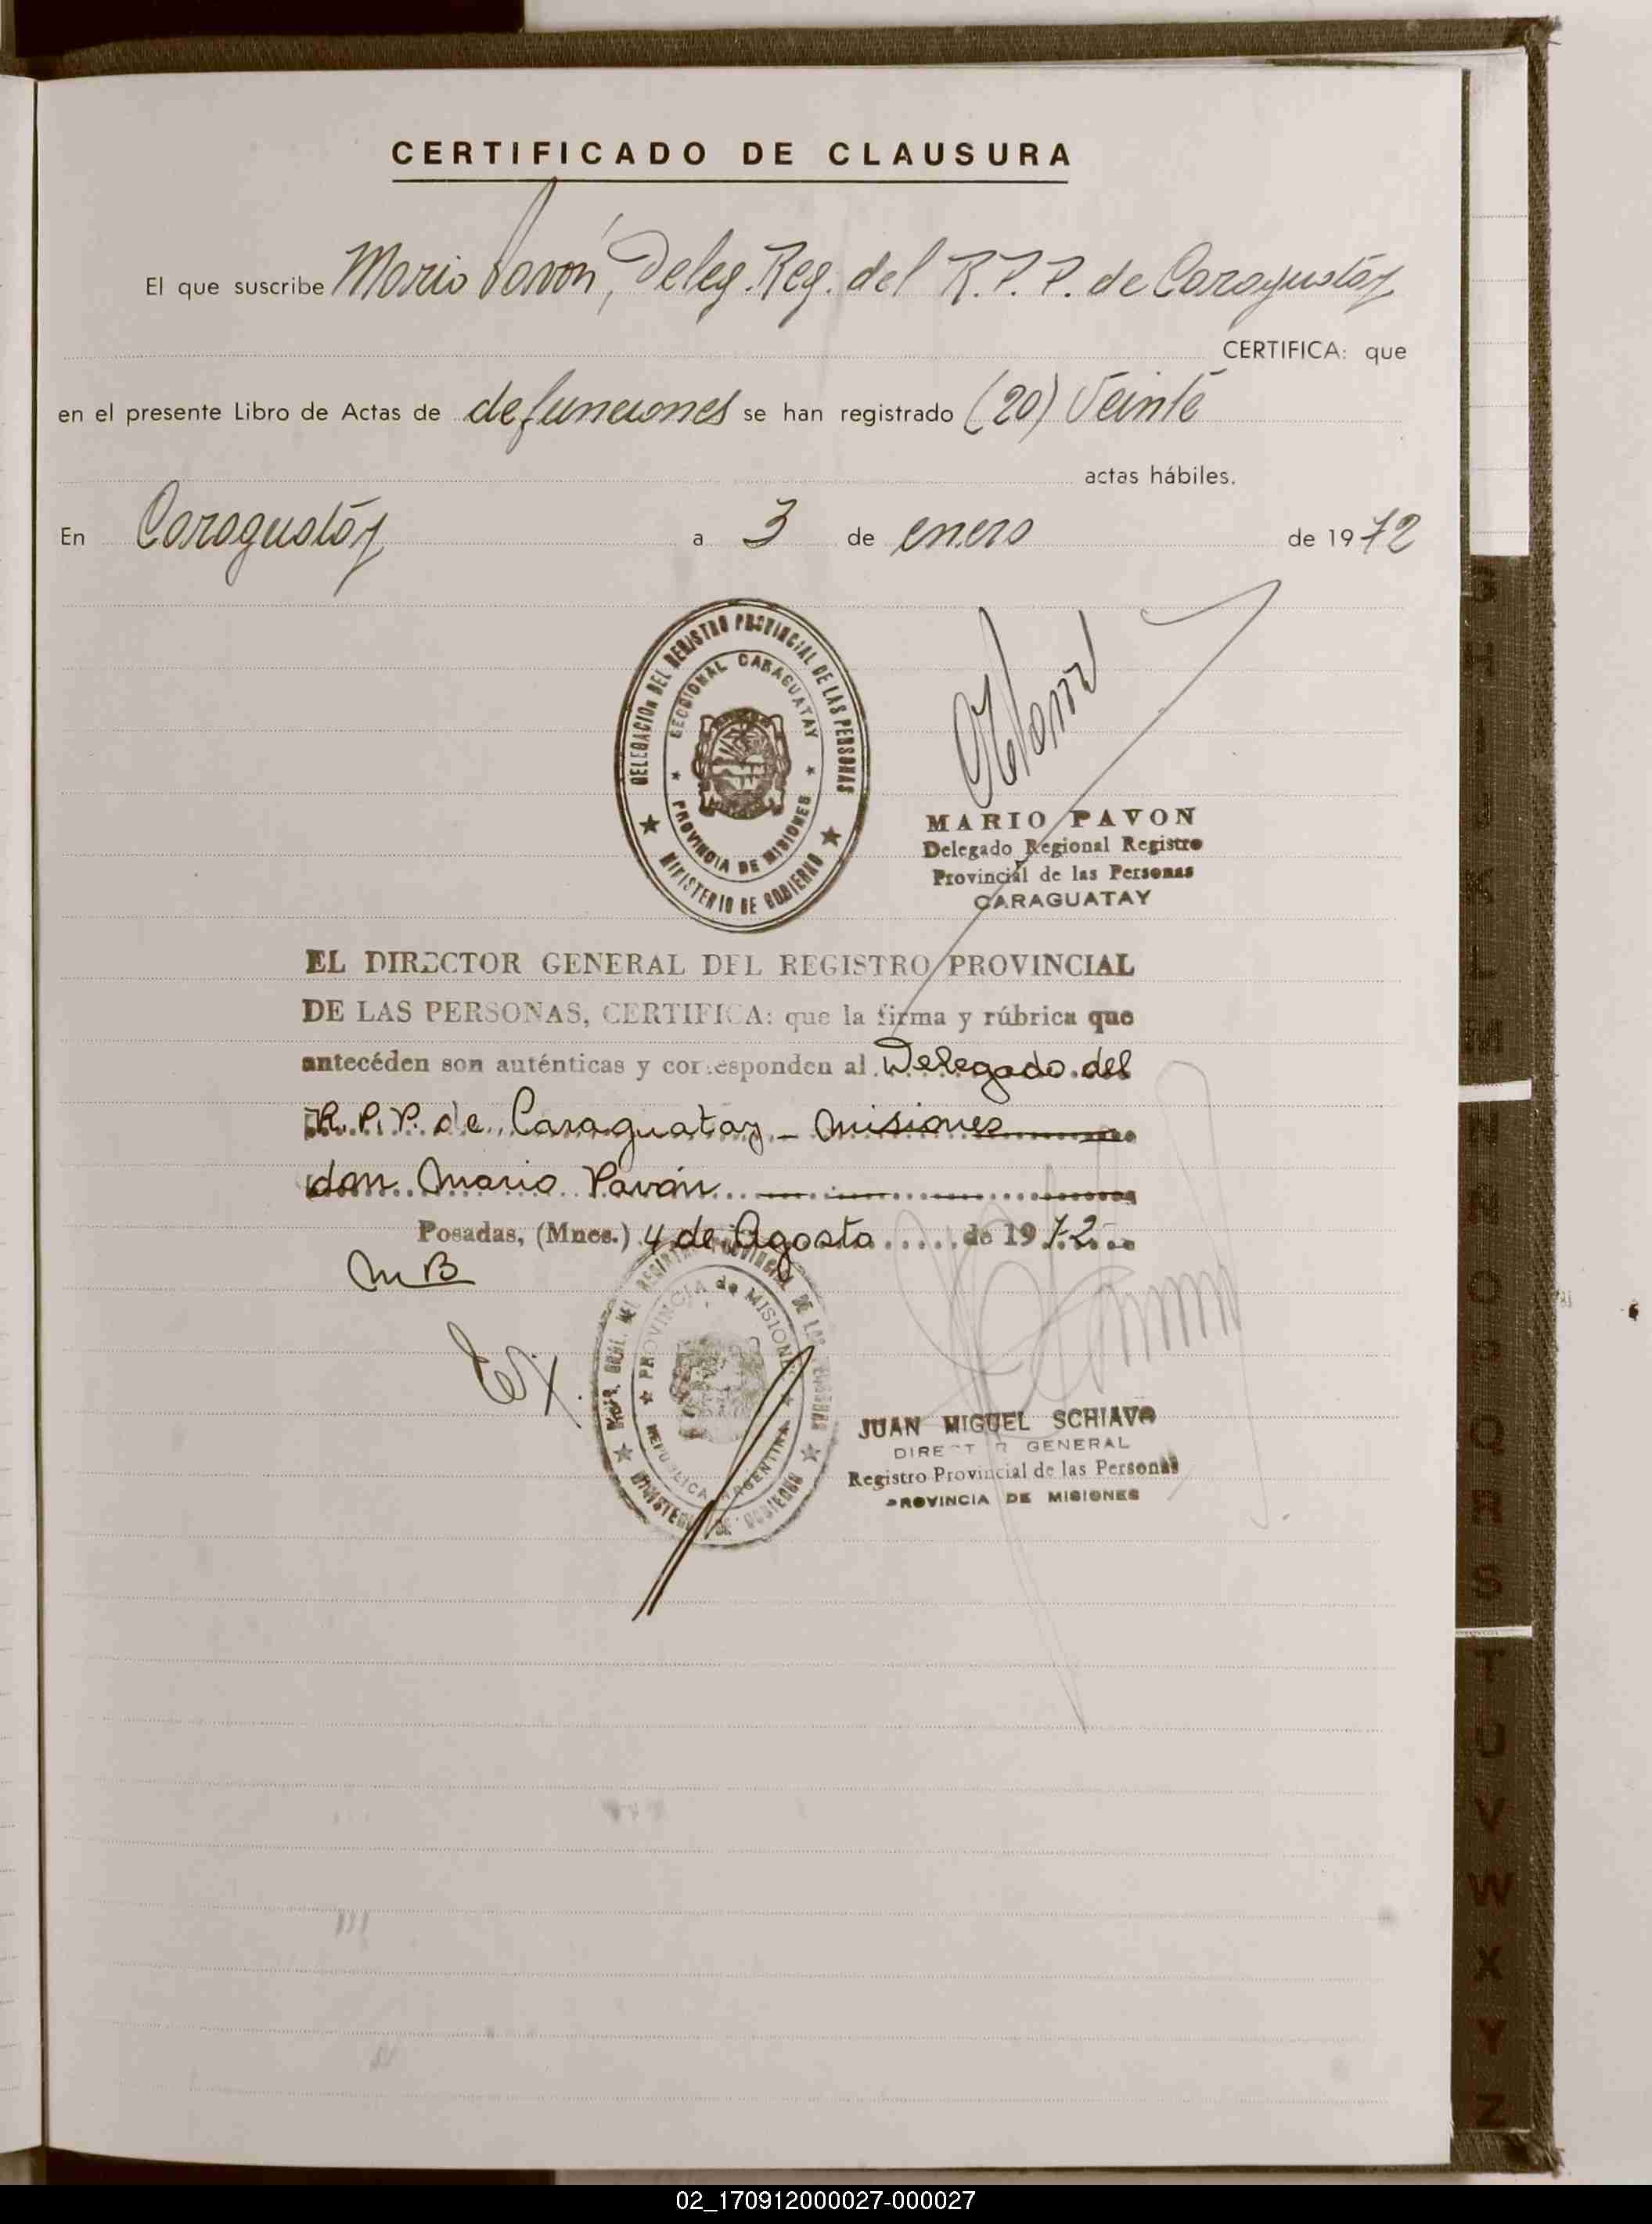 CERTIFICADO DE CLAUSURA
El que suscribe Mario Pavón, Deleg. Reg. del R.P.P. de Caraguatáy
CERTIFICA: que
en el presente Libro de Actas de defunciones se han registrado (20) Veinte
actas hábiles.
En Caraguatáy a 3 de enero de 1972
DELEGACION DEL REGISTRO PROVINCIAL DE LAS PERSONAS
SECCIONAL CARAGUATAY
PROVINCIA DE MISIONES
MINISTERIO DE GOBIERNO
MARIO PAVON
Delegado Regional Registro
Provincial de las Personas
CARAGUATAY
EL DIRECTOR GENERAL DEL REGISTRO PROVINCIAL
DE LAS PERSONAS, CERTIFICA: que la firma y rúbrica que
antecéden son auténticas y corresponden al Delegado del
R.P.P. de Caraguatay - Misiones
don Mario Pavón
Posadas, (Mnes.) 4 de Agosto de 1972
MB
PROVINCIA de MISIONES
REPUBLICA ARGENTINA
MINISTERIO DE GOBIERNO
JUAN MIGUEL SCHIAVO
DIRECTOR GENERAL
Registro Provincial de las Personas
PROVINCIA DE MISIONES
G
H
I
J
K
L
M
N
Ñ
O
P
Q
R
S
T
U
V
W
X
Y
Z
02_170912000027-000027